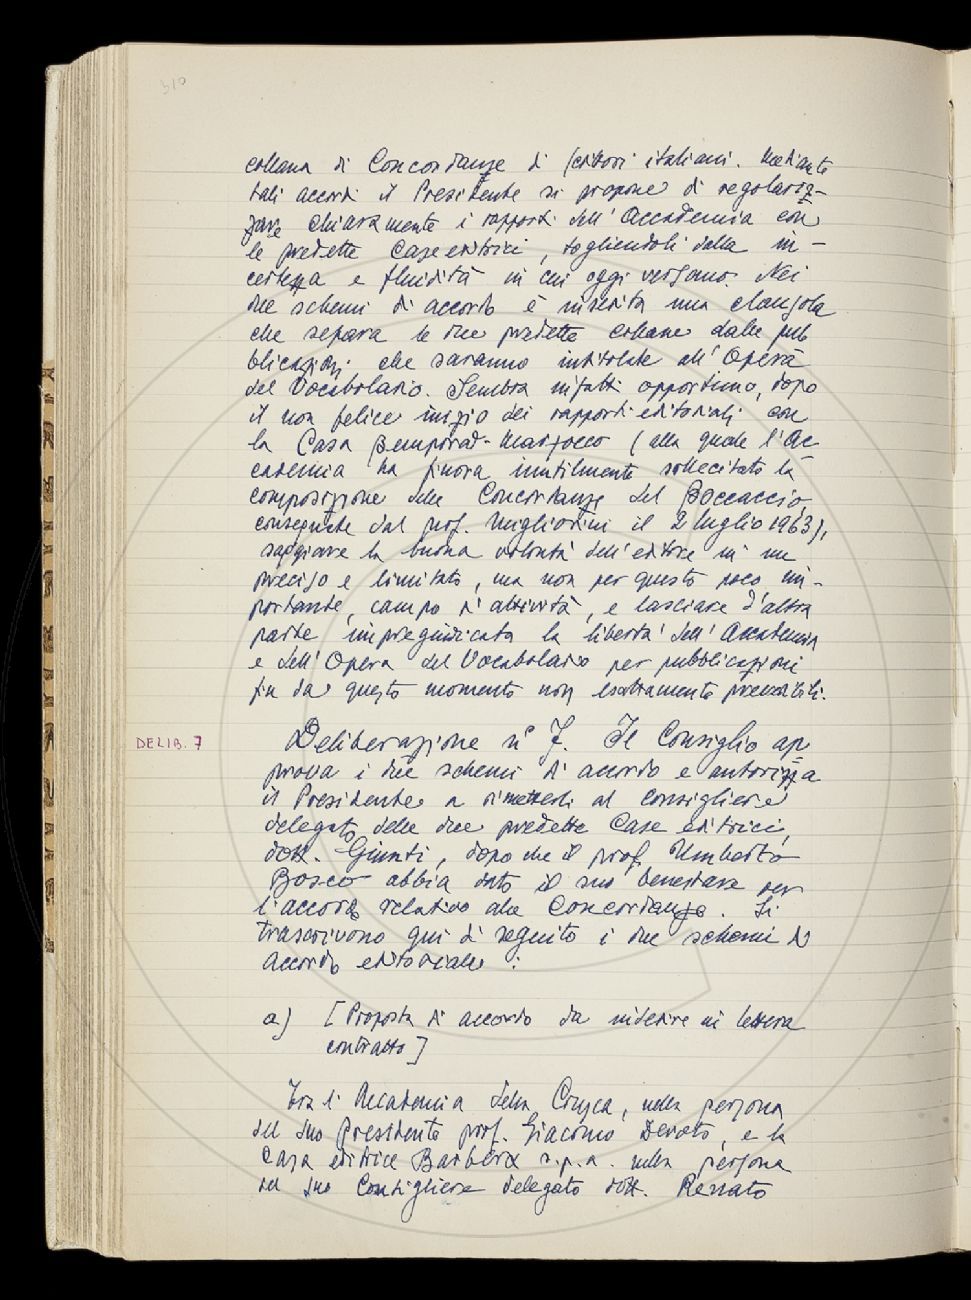 310
collana di Concordanze di scrittori italiani. Mediante
tali accordi il Presidente si propone di regolariz-
zare chiaramente i rapporti dell'Accademia con
le predette Case editrici, togliendoli dalla in-
certezza e fluidità in cui oggi versano. Nei
due schemi di accordo è inserita una clausola
che separa le due predette collane dalle pub
blicazioni che saranno intitolate all'Opera
del Vocabolario. Sembra infatti opportuno, dopo
il non felice inizio dei rapporti editoriali con
la Casa Bemporad-Marzocco (alla quale l'Ac
cademia ha finora inutilmente sollecitato la
composizione delle Concordanze del Boccaccio,
consegnate dal prof. Migliorini il 2 luglio 1963),
saggiare la buona volontà dell'editore in un
preciso e limitato, ma non per questo poco im-
portante, campo di attività, e lasciare d'altra
parte impregiudicata la libertà dell'Accademia
e dell'Opera del Vocabolario per pubblicazioni
fin da questo momento non esattamente prevedibili.
DELIB. 7
Deliberazione n° 7. Il Consiglio ap
prova i due schemi di accordo e autorizza
il Presidente a rimetterli al consigliere
delegato delle due predette Case editrici,
dott. Giunti, dopo che il prof. Umberto
Bosco abbia dato il suo benestare per
l'accordo relativo alle Concordanze. Si
trascrivono qui di seguito i due schemi di
accordo editoriale:
a) [Proposta di accordo da inserire in lettera
contratto]
Tra l'Accademia della Crusca, nella persona
del suo Presidente prof. Giacomo Devoto, e la
Casa editrice Barbèra s.p.a. nella persona
del suo Consigliere delegato dott. Renato